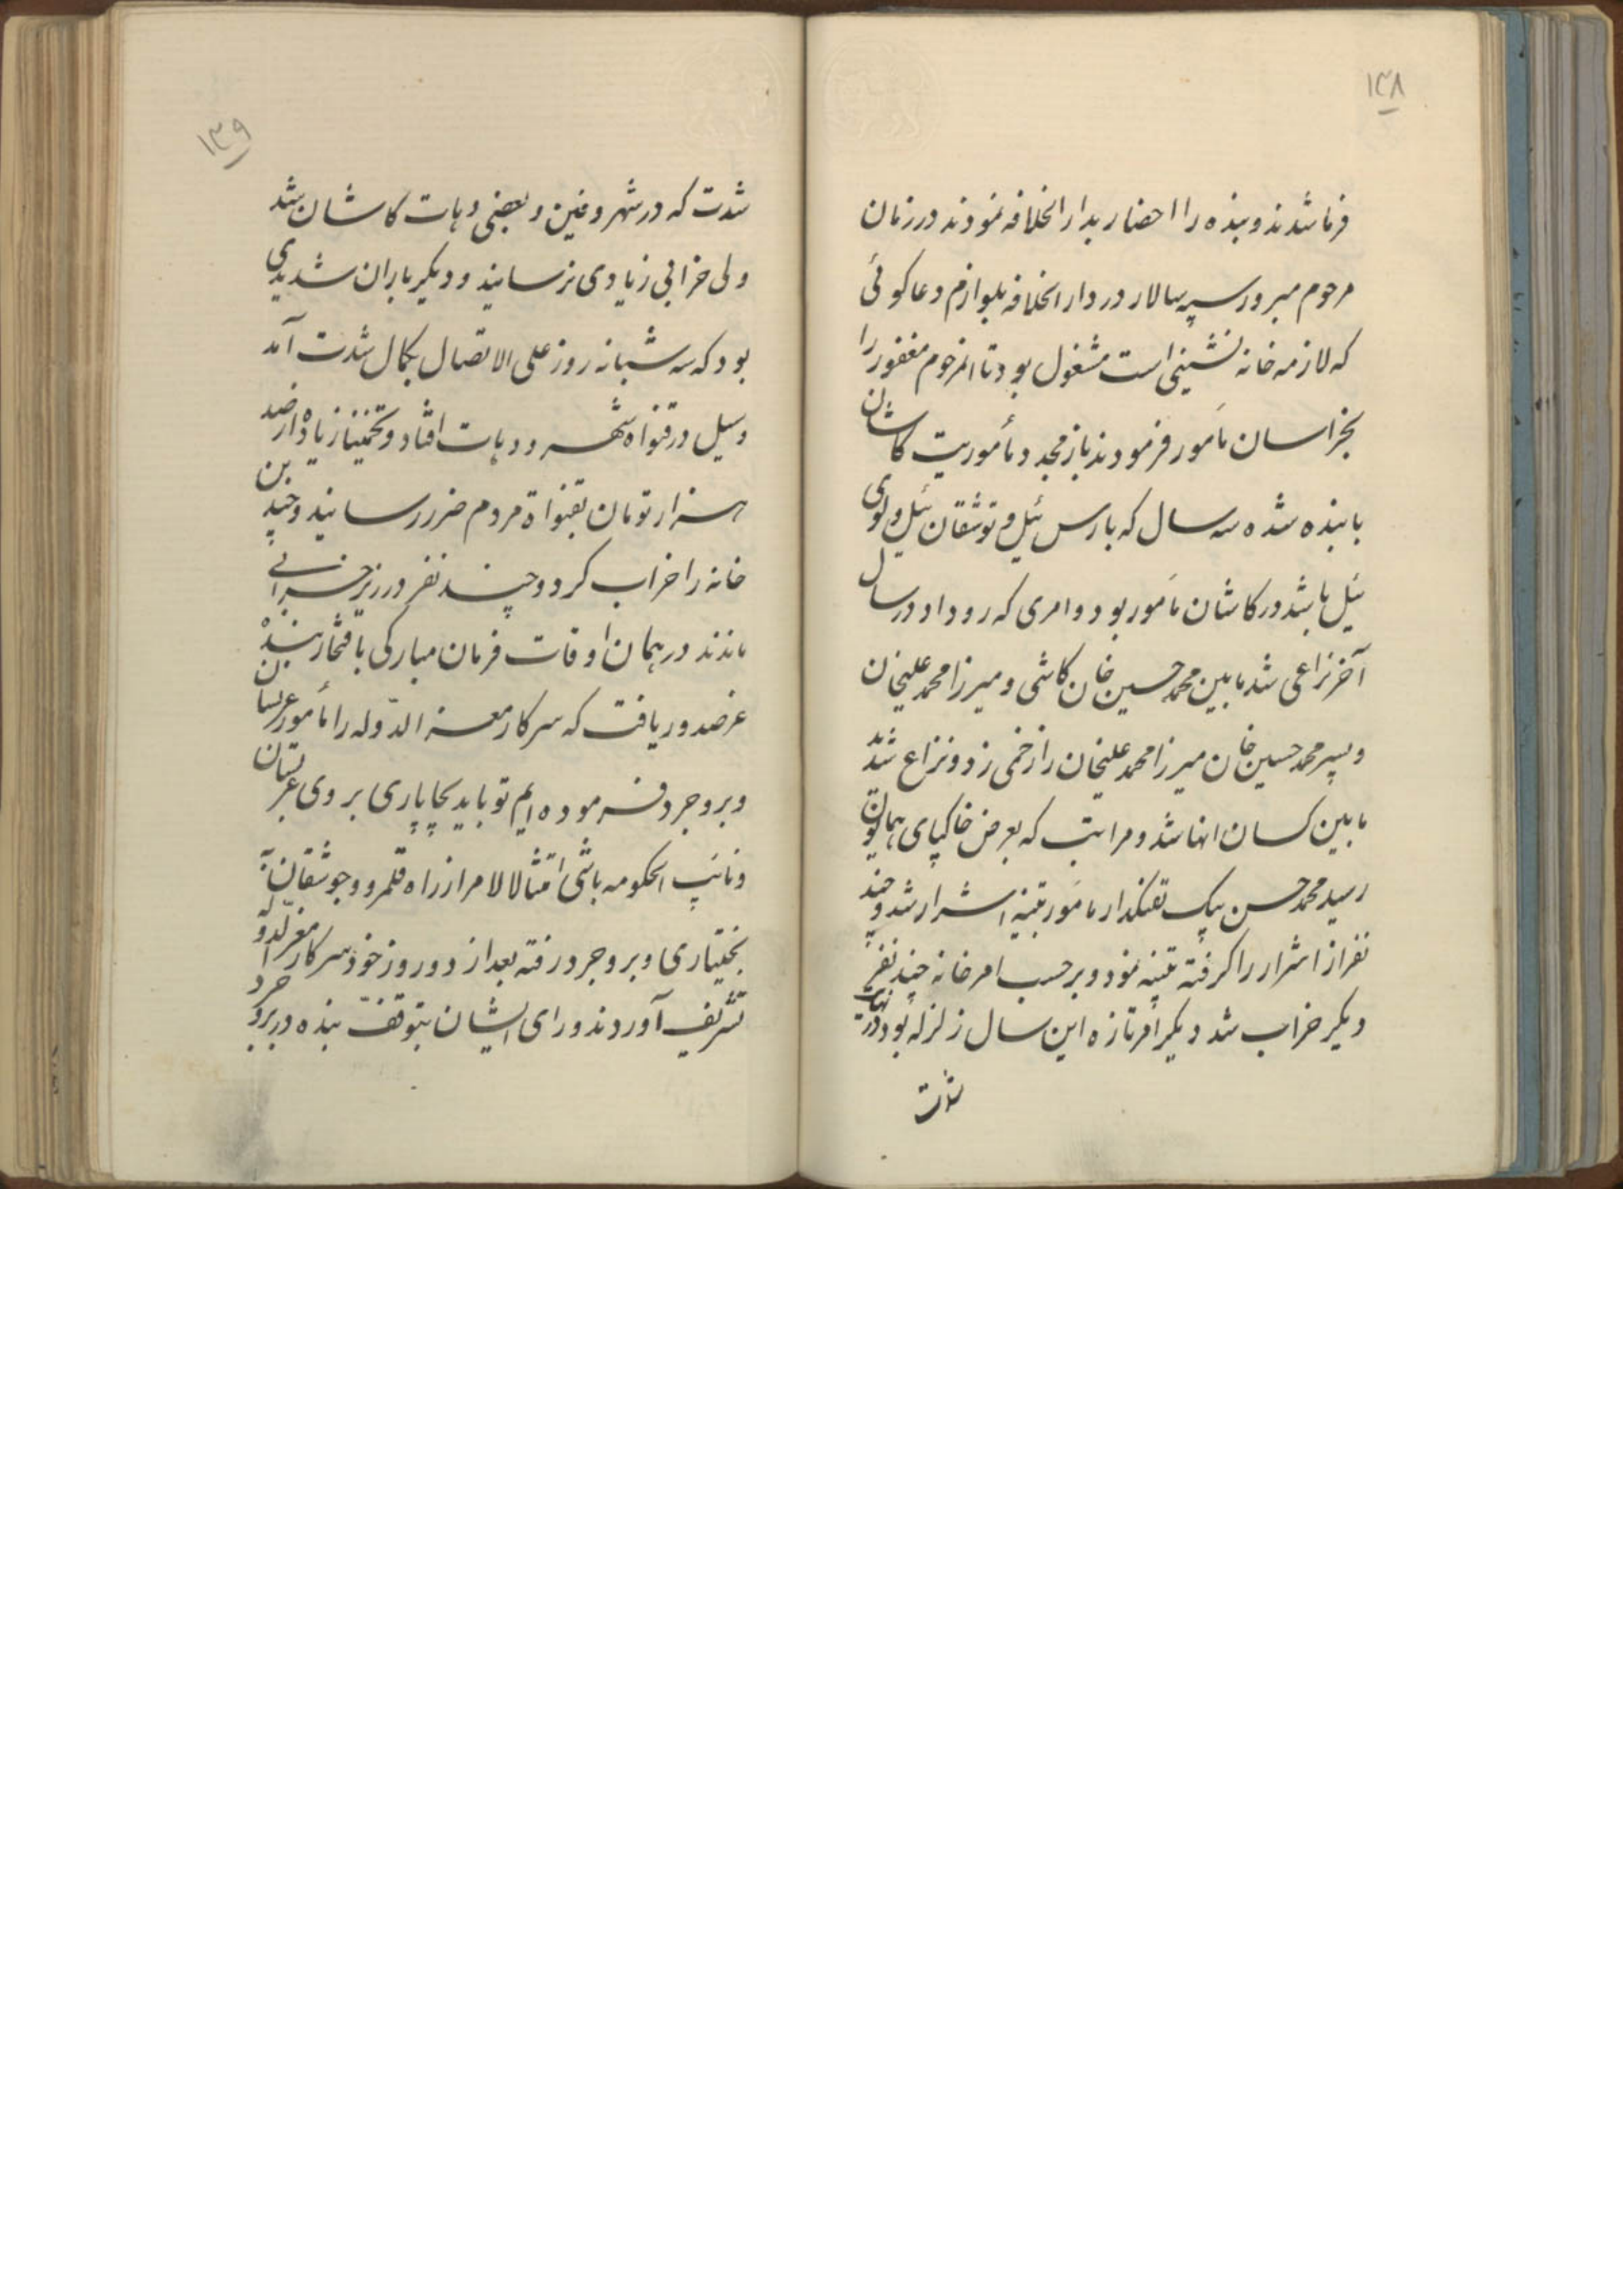 ۱۳۸
فرما شدند و بنده را احضار بدار الخلافه نمودند در زمان
مرحوم مبرور سپه سالار در دار الخلافه بلوازم دعا کوئی
که لازمه خانه نشینی است مشغول بود تا انمرحوم مغفور را
بخراسان مأمور فرمودند باز مجدد مأموریت کاشان
با بنده شده سه سال که بارس ئیل و توشقان ئیل و لوی
ئیل باشد در کاشان مأمور بود و امری که روداد در سال
آخر نزاعی شد مابین محمد حسین خان کاشی و میرزا محمد علیخان
و پسر محمد حسین خان میرزا محمد علیخان را زخمی زد و نزاع شد
مابین کسان انها شد و مراتب که بعرض خاکپای همایون
رسید محمد حسن بیک تفنکدار مأمور تنبیه اشرار شد و چند
نفر از اشرار را کرفته تنبیه نمود و بر حسب امر خانه چند نفر
دیکر خراب شد دیکر امر تازه این سال زلزله بود در نهایت
شدت
۱۳۹
شدت که در شهر و فین و بعضی دهات کاشان شد
ولی خرابی زیادی نرسانید و دیکر باران شدیدی
بود که سه شبانه روز علی الاتصال بکمال شدت آمد
و سیل در قنواه شهر و دهات افتاد و تخمینا زیاده از صد
هزار تومان بقنواة مردم ضرر رسانید و چندین
خانه را خراب کرد و چند نفر در زیر خرابی
ماندند در همان اوقات فرمان مبارکی بافتخار بنده
عز صدور یافت که سرکار معز الدّوله را مأمور عربستان
و بروجرد فرموده ایم تو باید بچاپاری بروی عربستان
و نائب الحکومه باشی امتثالا لامر از راه قلمرو و جوشقان به
بختیاری و بروجرد رفته بعد از دو روز خود سرکار معز الدّوله
تشریف آوردند و رای ایشان بتوقف بنده در بروجرد